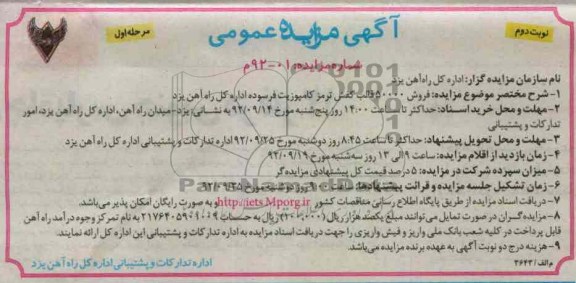 نوبت دوم
آگهی مزایده عمومی
مرحله اول
شماره مزایده: ۰۱-۹۲م
نام سازمان مزایده گزار: اداره کل راه آهن یزد
۱- شرح مختصر موضوع مزایده: فروش ۵۰۰۰۰ قالب کفش ترمز کامپوزیت فرسوده اداره کل راه آهن یزد
۲- مهلت و محل خرید اسناد: حداکثر تا ساعت ۱۴:۰۰ روز پنج‌شنبه مورخ ۹۲/۰۹/۱۴ به نشانی: یزد- میدان راه آهن، اداره کل راه آهن یزد، امور
تدارکات و پشتیبانی
۳- مهلت و محل تحویل پیشنهاد: حداکثر تا ساعت ۸:۴۵ روز دوشنبه مورخ ۹۲/۰۹/۲۵ اداره تدارکات و پشتیبانی اداره کل راه آهن یزد
۴- زمان بازدید از اقلام مزایده: ساعت ۹ الی ۱۳ روز سه‌شنبه مورخ ۹۲/۰۹/۱۹
۵- میزان سپرده شرکت در مزایده: ۵ درصد قیمت کل پیشنهادی مزایده‌گر
۶- زمان تشکیل جلسه مزایده و قرائت پیشنهادها: ساعت ۹ روز دوشنبه مورخ ۹۲/۰۹/۲۵
۷- دریافت اسناد مزایده از طریق پایگاه اطلاع رسانی مناقصات کشور http://iets.Mporg.ir و به صورت رایگان امکان پذیر می‌باشد.
۸- مزایده‌گران در صورت تمایل می‌توانند مبلغ یکصد هزار ریال ریال به حساب ۲۱۷۶۴۰۵۹۰۱۰۰۹ به نام تمرکز وجوه درآمد راه آهن
قابل پرداخت در کلیه شعب بانک ملی واریز و فیش واریزی را جهت دریافت اسناد مزایده به اداره تدارکات و پشتیبانی این اداره کل ارائه نمایند.
۹- هزینه درج دو نوبت آگهی به عهده برنده مزایده می‌باشد.
م الف/ ۳۶۴۳
اداره تدارکات و پشتیبانی اداره کل راه آهن یزد